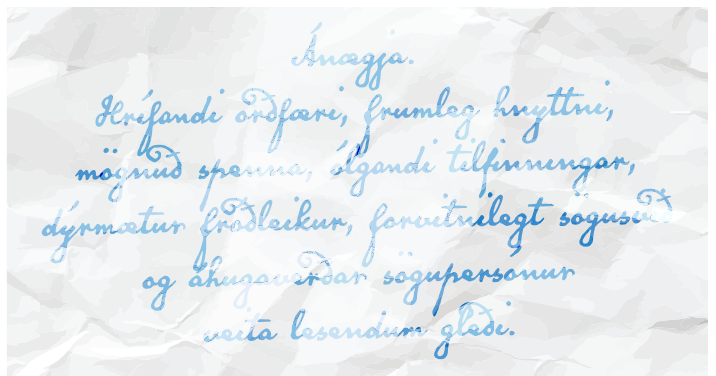 Ánægja.
Hrífandi orðfæri, frumleg hnyttni,
mögnuð spenna, ólgandi tilfinningar,
dýrmætur fróðleikur, forvitnilegt sögusvið
og áhugaverðar sögupersónur
veita lesendum gleði.